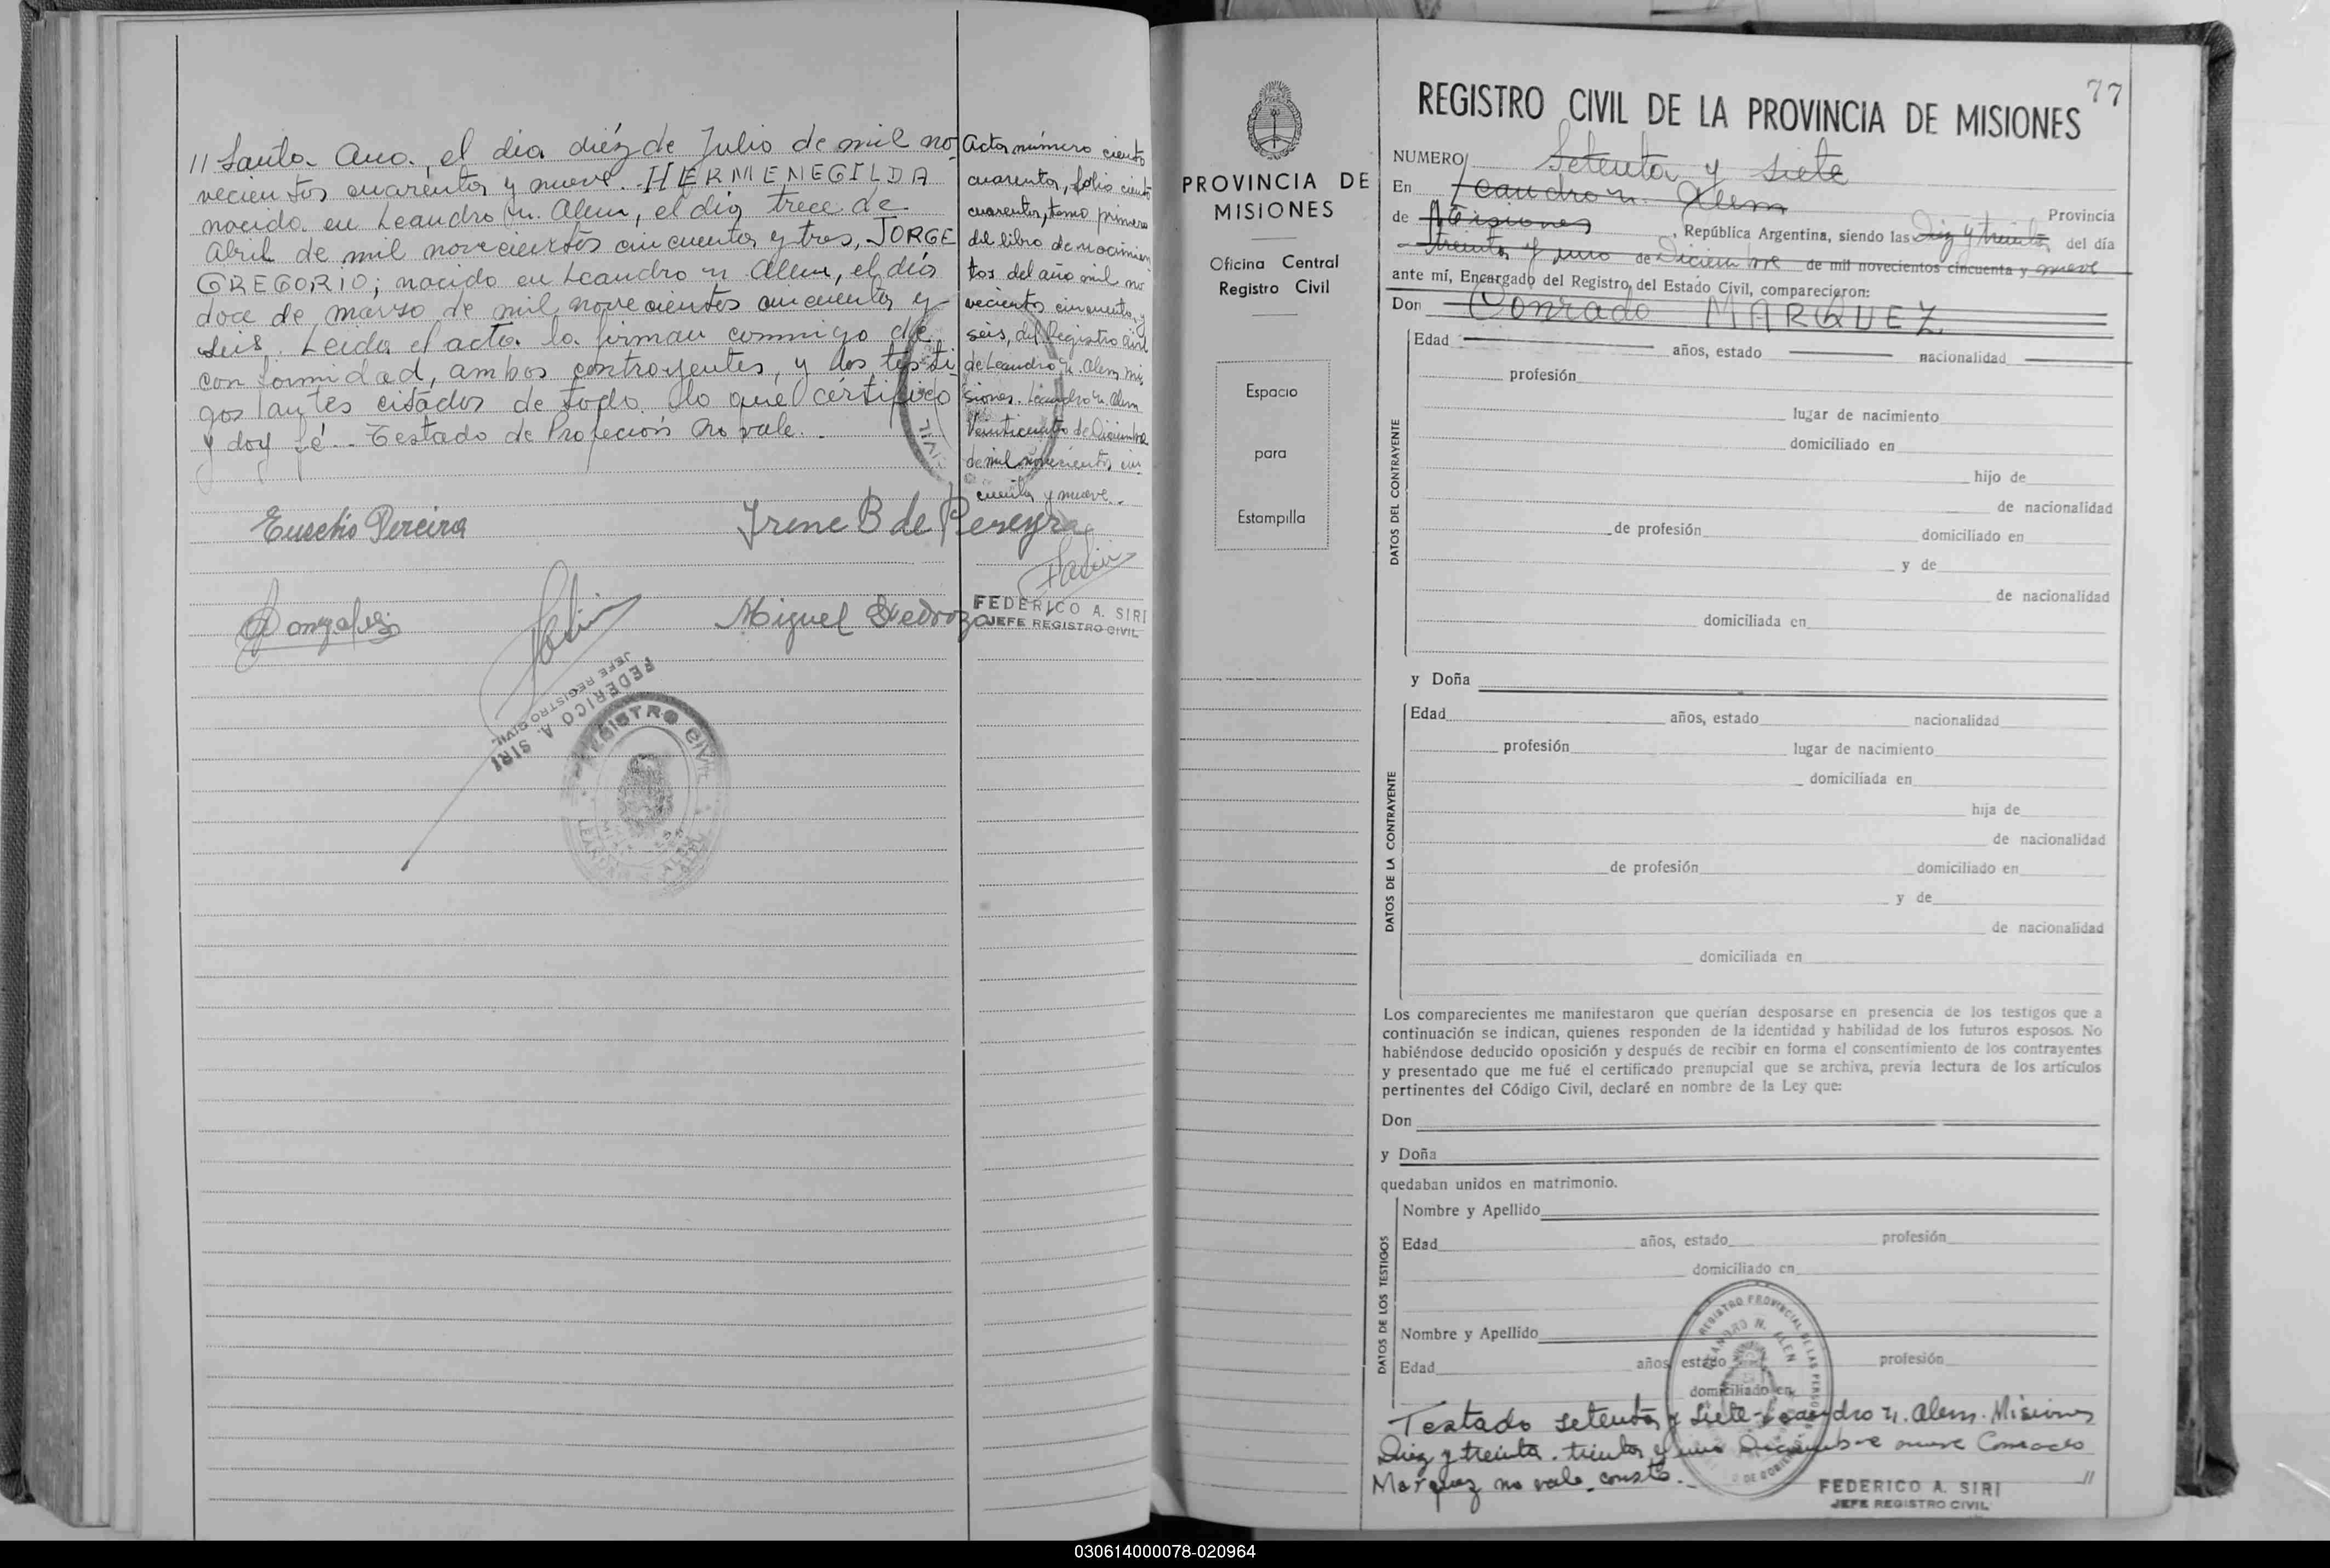 // Santa Ana, el día diéz de Julio de mil no-
vecientos cuarenta y nueve. HERMENEGILDA
nacida en Leandro N. Alem, el día trece de
Abril de mil novecientos cincuenta y tres, JORGE
GREGORIO; nacido en Leandro N Alem, el día
doce de marzo de mil novecientos cincuenta y
seis. Leida el acta la firman conmigo de
conformidad, ambos contrayentes, y los testi-
gos antes citados de todo lo que certifico
y doy fé.- Testado de Profeción no vale.-
Eusebio Pereira
Irene B de Pereyra
Gonzalez
Miguel Pedrozo
FEDERICO A. SIRI
JEFE REGISTRO CIVIL
REGISTRO CIVIL
Acta número ciento
cuarenta, folio ciento
cuarenta, tomo primero
del libro de nacimien
tos del año mil no
vecientos cincuenta y
seis, del Registro Civil
de Leandro N. Alem Mi
siones. Leandro N. Alem
Veinticuatro de Diciembre
de mil novecientos cin-
cuenta y nueve.-
FEDERICO A. SIRI
JEFE REGISTRO CIVIL
PROVINCIA DE
MISIONES
Oficina Central
Registro Civil
Espacio
para
Estampilla
77
REGISTRO CIVIL DE LA PROVINCIA DE MISIONES
NUMERO Setenta y siete
En Leandro N. Alem
de Misiones Provincia
, República Argentina, siendo las Diez y treinta del día
treinta y uno de Diciembre de mil novecientos cincuenta y nueve
ante mí, Encargado del Registro del Estado Civil, comparecieron:
Don Conrado MARQUEZ
DATOS DEL CONTRAYENTE
Edad años, estado nacionalidad
profesión
lugar de nacimiento
domiciliado en
hijo de
de nacionalidad
de profesión domiciliado en
y de
de nacionalidad
domiciliada en
y Doña
DATOS DE LA CONTRAYENTE
Edad años, estado nacionalidad
profesión lugar de nacimiento
domiciliada en
hija de
de nacionalidad
de profesión domiciliado en
y de
de nacionalidad
domiciliada en
Los comparecientes me manifestaron que querían desposarse en presencia de los testigos que a
continuación se indican, quienes responden de la identidad y habilidad de los futuros esposos. No
habiéndose deducido oposición y después de recibir en forma el consentimiento de los contrayentes
y presentado que me fué el certificado prenupcial que se archiva, previa lectura de los artículos
pertinentes del Código Civil, declaré en nombre de la Ley que:
Don
y Doña
quedaban unidos en matrimonio.
DATOS DE LOS TESTIGOS
Nombre y Apellido
Edad años, estado profesión
domiciliado en
Nombre y Apellido
Edad años, estado profesión
domiciliado en
Testado setenta y siete- Leandro N. Alem. Misiones
Diez y treinta. treinta y uno Diciembre nueve Conrado
Marquez no vale. conste.- //
FEDERICO A. SIRI
JEFE REGISTRO CIVIL
030614000078-020964